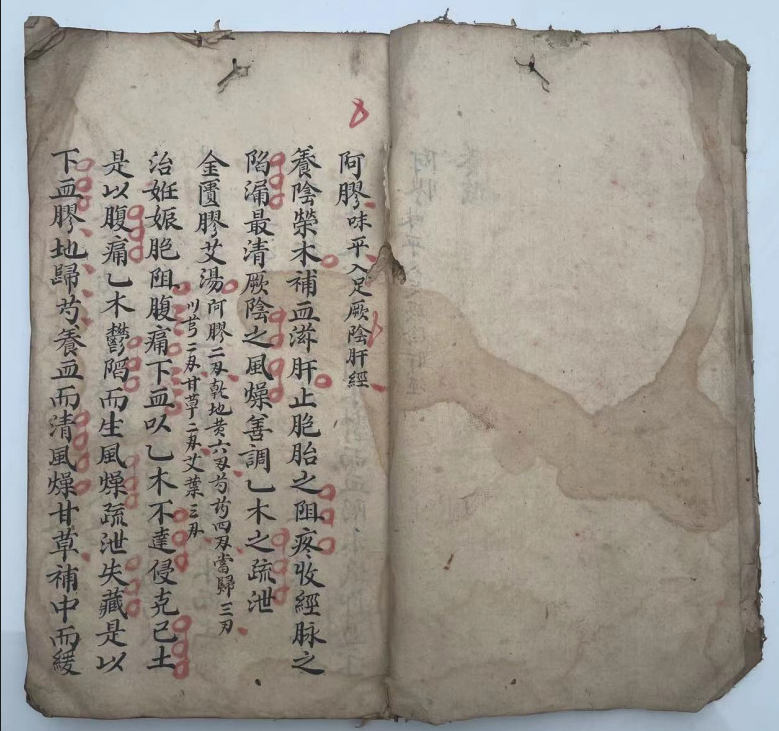 阿膠味平入足厥陰肝經
養陰榮木補血滋肝止胞胎之阻疼收經脉之
陷漏最清厥陰之風燥善調乙木之疏泄
金匱膠艾湯阿膠二刄乾地黄六刄芍药四刄當歸三刄
川芎二刄甘草二刄艾葉三刄
治妊娠胞阻腹痛下血以乙木不達侵克己土
是以腹痛乙木鬱陷而生風燥疏泄失藏是以
下血膠地歸芍養血而清風燥甘草補中而緩